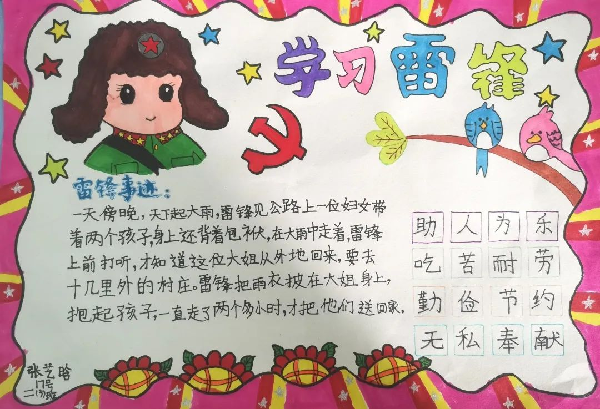 学习雷锋
雷锋事迹:
一天傍晚,天下起大雨,雷锋见公路上一位妇女带
着两个孩子,身上还背着包袱,在大雨中走着,雷锋
上前打听,才知道这位大姐从外地回来,要去
十几里外的村庄。雷锋把雨衣披在大姐身上,
抱起孩子,一直走了两个多小时,才把他们送回家。
助人为乐
吃苦耐劳
勤俭节约
无私奉献
张艺晗
17号
二(3)班